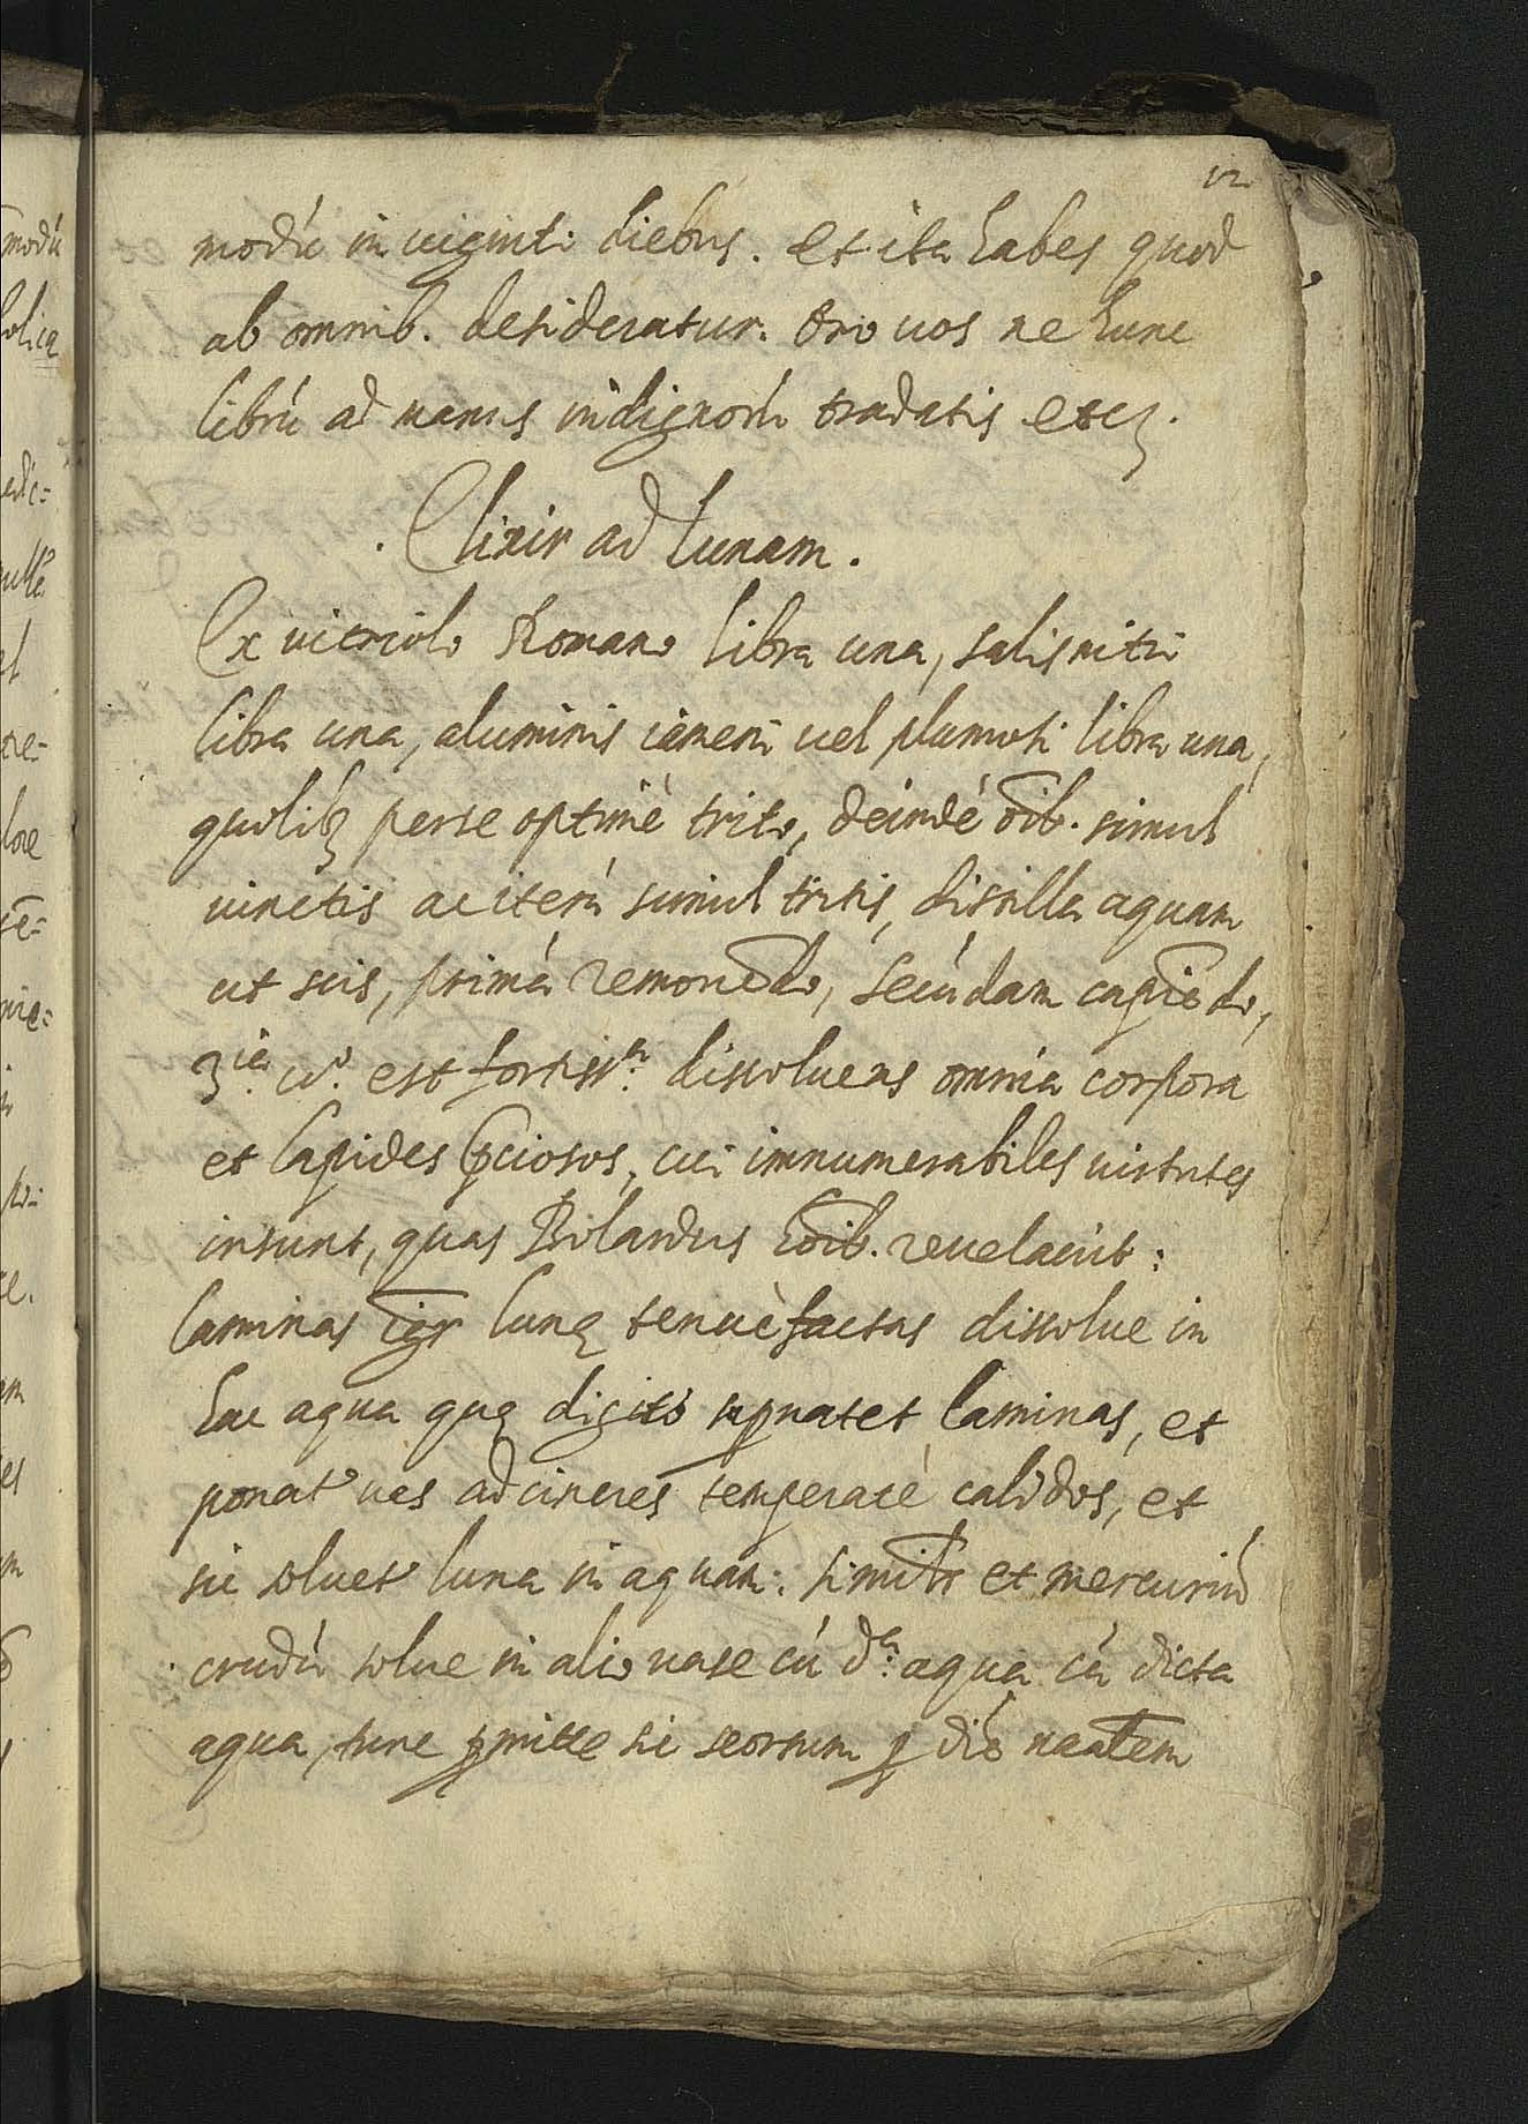 12
modú in uiginti diebus. et ita habes quod
ab omnib. desideratur. Oro uos ne hunc
librú ad manus indignorú tradatis etcꝫ.
. Elixir ad lunam .
Ex uitriolo Romano libra una, salis nitri
libra una, aluminis iameni uel plumosi libra una,
quolibꝫ per se optimè trito, deindè oīb. simul
iunctis ac iterú simul tritis, distilla aquam
ut scis, primá remouēdo, secúdam capiēdo,
3.ia u.o est fortiss.a dissoluens omnia corpora
et lapides p̄ciosos, cui innumerabiles uirtutes
insunt, quas Rolandus hoīb. reuelauit:
laminas igr̄ lunę tenuè factas dissolue in
hac aqua quę digitó suꝑnatet laminas, et
ponat' uas ad cineres temperatè calidos, et
sic soluet' luna in aquam: simil̄r et mercuriú
crudú solue in alio uase cú d.a aqua cú dicta
aqua, tunc ꝑmitte sic seorsum ꝑ diē nāalem